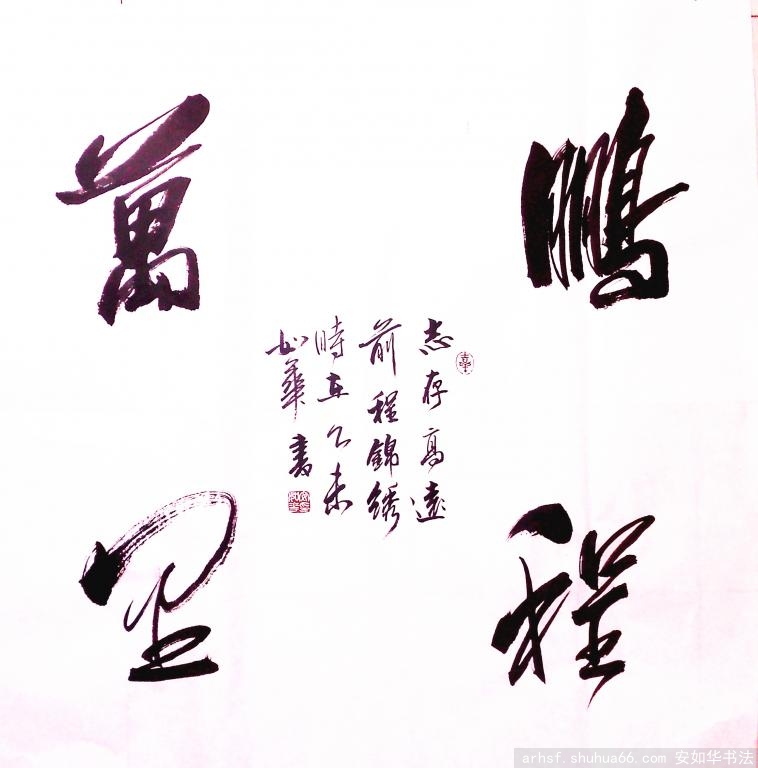 鵬程
萬里
志存高遠
前程錦綉
時在乙未
如華書
arhsf.shuhua66.com 安如华书法